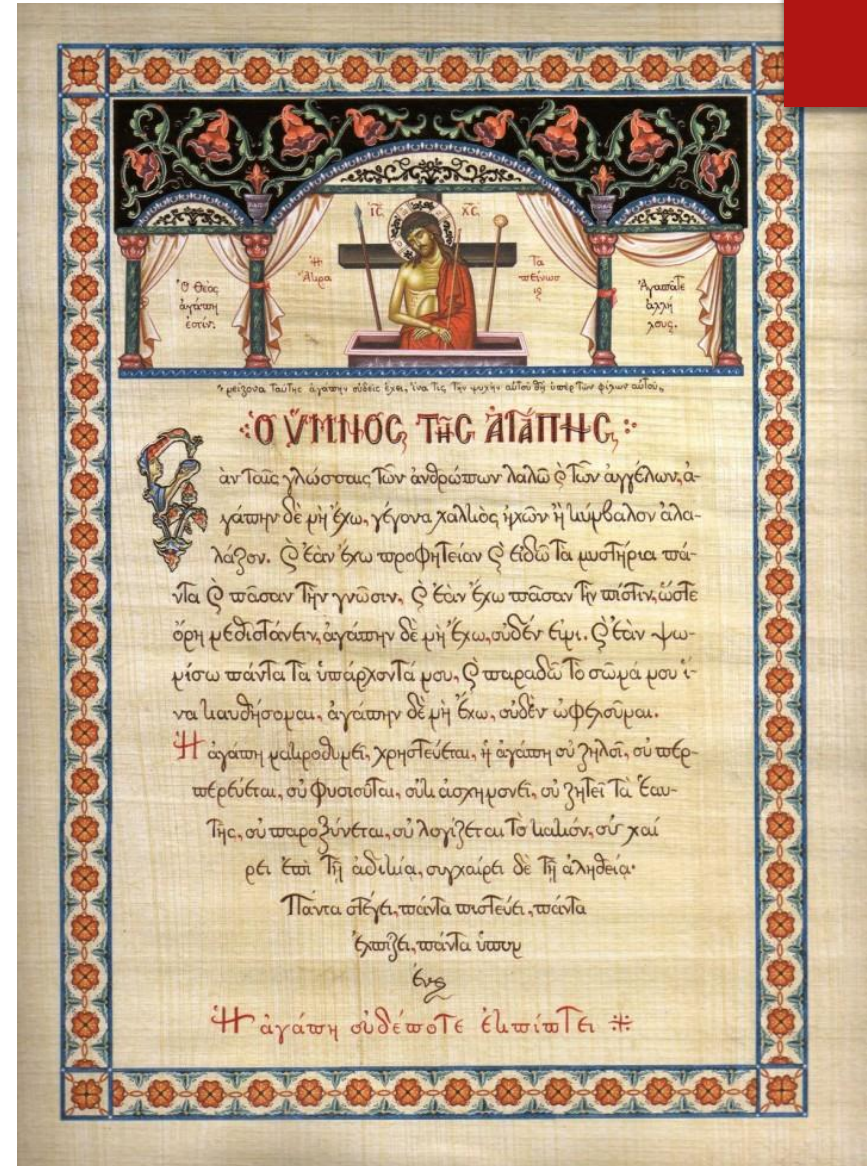 ἸC ΧC
Ἡ Ἄκρα
Ταπείνωσις
Ὁ Θεὸς
ἀγάπη
ἐστίν.
Ἀγαπᾶτε
ἀλλή
λους.
μείζονα ταύτης ἀγάπην οὐδεὶς ἔχει, ἵνα τις τὴν ψυχὴν αὐτοῦ θῇ ὑπὲρ τῶν φίλων αὐτοῦ,
Ὁ ὝΜΝΟC ΤῆC ἈΓΆΠΗC
Ἐὰν ταῖς γλώσσαις τῶν ἀνθρώπων λαλῶ ϛ τῶν ἀγγέλων, ἀ-
γάπην δὲ μὴ ἔχω, γέγονα χαλκὸς ἠχῶν ἢ κύμβαλον ἀλα-
λάζον. ϛ ἐὰν ἔχω προφητείαν ϛ εἰδῶ τα μυστήρια πά-
ντα ϛ πᾶσαν τὴν γνῶσιν, ϛ ἐὰν ἔχω πᾶσαν τὴν πίστιν, ὥστε
ὄρη μεθιστάνειν, ἀγάπην δὲ μὴ ἔχω, οὐδέν εἰμι. ϛ ἐὰν ψω-
μίσω πάντα τα ὑπάρχοντά μου, ϛ παραδῶ τὸ σῶμά μου ἵ-
να καυθήσομαι, ἀγάπην δὲ μὴ ἔχω, οὐδὲν ὠφελοῦμαι.
Ἡ ἀγάπη μακροθυμεῖ, χρηστεύεται, ἡ ἀγάπη οὐ ζηλοῖ, οὐ περ-
περεύεται, οὐ φυσιοῦται, οὐκ ἀσχημονεῖ, οὐ ζητεῖ τὰ ἑαυ-
τῆς, οὐ παροξύνεται, οὐ λογίζεται τὸ κακόν, οὐ χαί
ρει ἐπὶ τῇ ἀδικίᾳ, συγχαίρει δὲ τῇ ἀληθείᾳ·
Πάντα στέγει, πάντα πιστεύει, πάντα
ἐλπίζει, πάντα ὑπομ
ένει
Ἡ ἀγάπη οὐδέποτε ἐκπίπτει